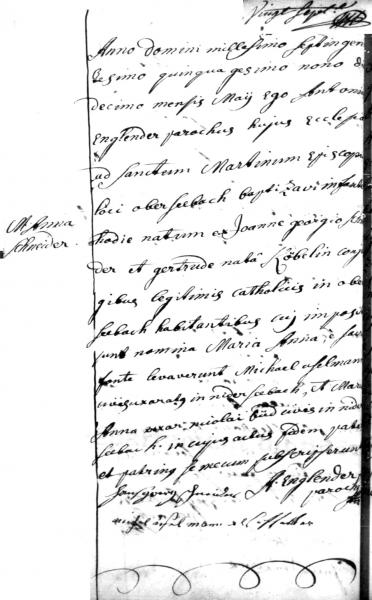 Vingt Sept
Anno domini millesimo septingen
tesimo quinquagesimo nono de
decimo mensis Maij Ego Antoni
Englender parochus hujus Ecclesiæ
ad Sanctum Martinum Episcopu
loci oberseebach baptizavi infant
M. Anna
Schneider
hodie natum ex Joanne georgio Sch
der et gertrude nata Köbelin conju
gibus legitimis catholicis in obe
seebach habitantibus cuj imposi
sunt nomina Maria Anna è sacr
fonte levaverunt Michael uselman
civis uxoratg in niderseebach, et Mari
Anna uxor nicolai civis in nider
seebach. in cujus actus fidem pater
et patring se mecum subscripserunt
A. Englender
paroch